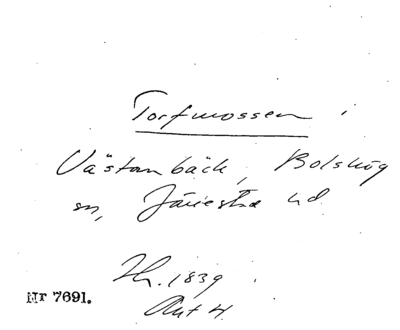 Torfmossen
Västanbäck, Bolshög
sn, Järrestad hd
Th. 1839
Ant 4.
Nr 7691.